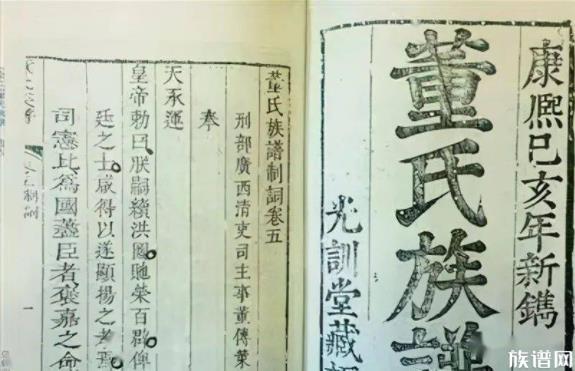 康熙己亥年新鐫
董氏族譜
光訓堂藏
董氏族譜制詞卷五
刑部廣西清吏司主事董傳策
奉
天承運
皇帝勅曰朕嗣纘洪圖貤榮百辟俾
廷之士咸得以遂顯揚之
司憲比為國藎臣者褒嘉之命
一
族谱网